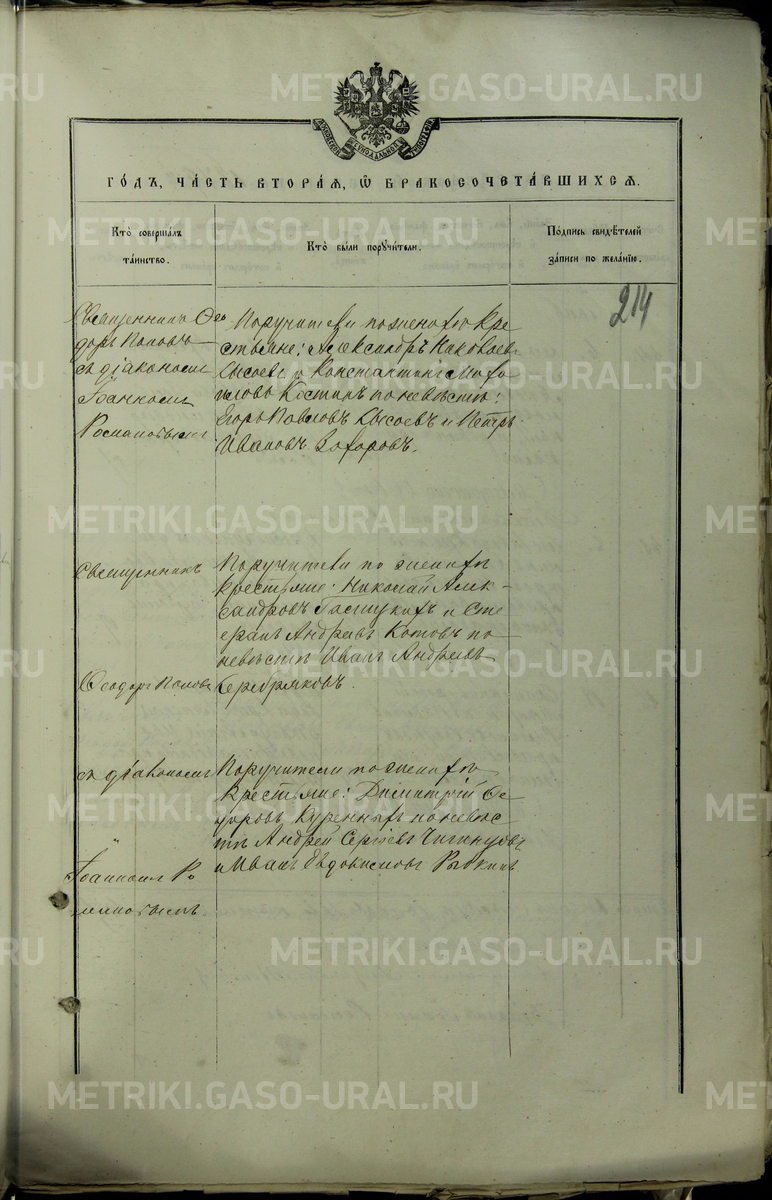 METRIKI.GASO-URAL.RU
МОСКОВСКОЙ СѴНОДАЛЬНОЙ ТИПОГРАФІИ
ГО́ДЪ, ЧА́СТЬ ВТОРА́Я, Ѿ БРАКОСОЧЕТА́ВШИХСЯ.
Кто̀ соверша́лъ
та́инство.
Кто̀ бы́ли поручи́тели.
По́дпись свидѣ́телей
за́писи по жела́нію.
214
Священникъ Ѳео
доръ Поповъ
съ діакономъ
Іоанномъ
Романовымъ
Поручители по женихѣ кре
стьяне: Александръ
Лысовъ и Константинъ
Костинъ по невѣстѣ:
Егоръ Павловъ Лысовъ и Петръ
Ивановъ Захаровъ.
Священникъ
Ѳеодоръ Поповъ
Поручители по женихѣ
крестьяне: Николай Алек-
сандровъ и Сте
фанъ Андреевъ Котовъ по
невѣстѣ Иванъ Андреевъ
Серебряковъ.
съ діакономъ
"
Іоанномъ Ро
мановымъ
Поручители по женихѣ
крестьяне: Димитрій Ѳе
доровъ Куренныхъ по невѣс
тѣ Андрей Сергѣевъ
и Иванъ Евдокимовъ